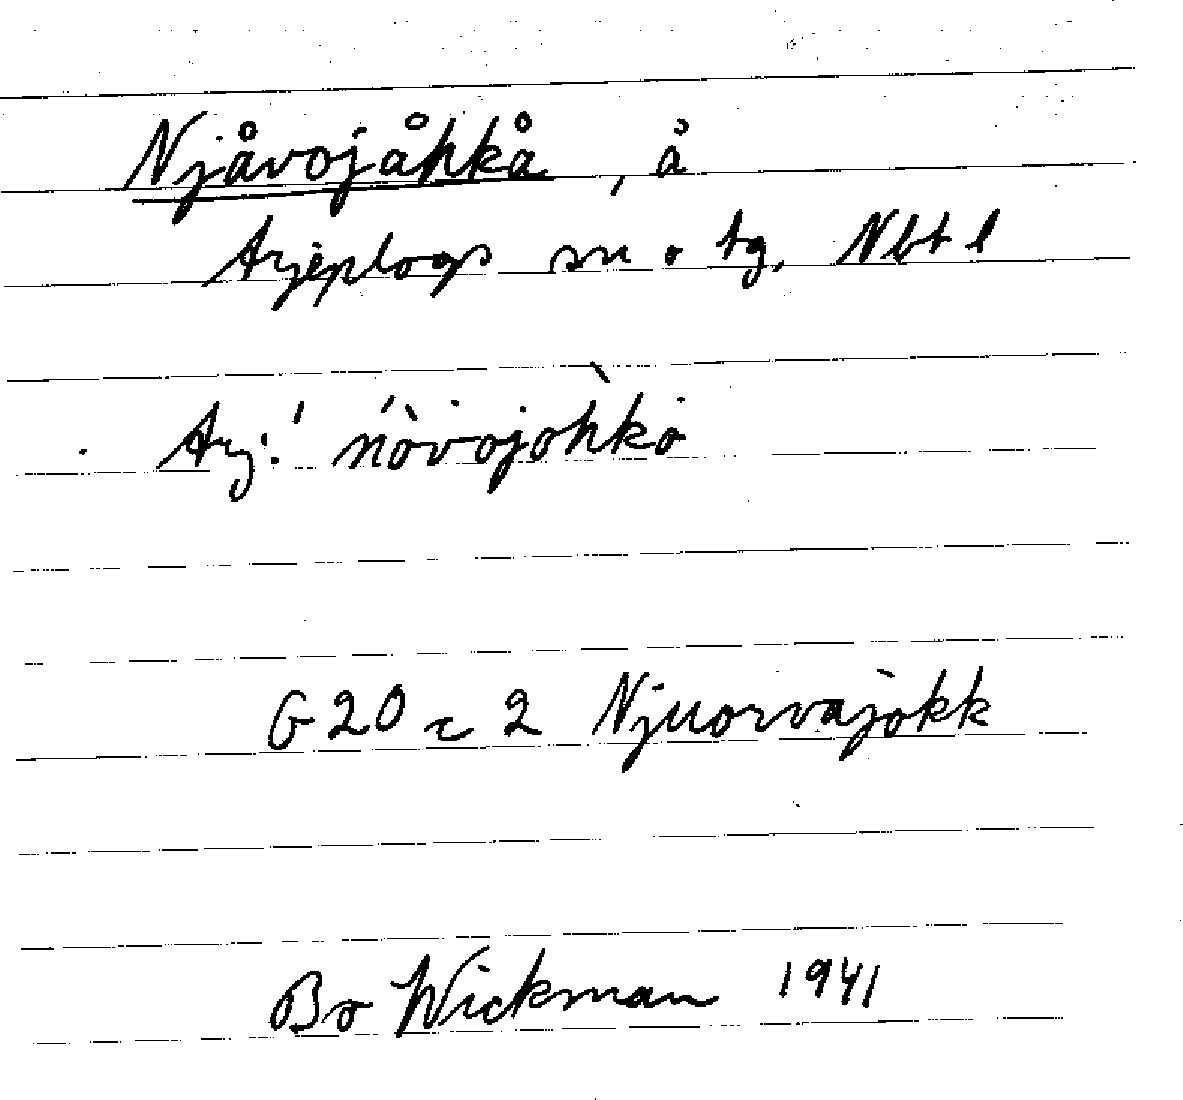 Njåvojåhkå, å
Arjeplogs sn o tg, Nbt l
Arj: ńòvojohko
G 20 c 2 Njuorvajokk
Bo Wickman 1941